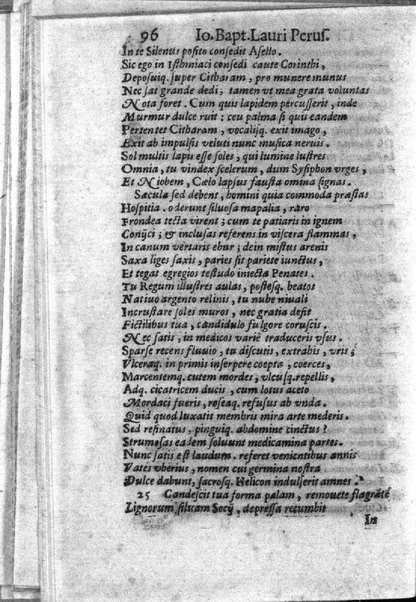 96 Io. Bapt. Lauri Perus.
In te Silenus posito consedit Asello.
Sic ego in Isthmiaci consedi caute Corinthi,
Deposuiq. super Citharam, pro munere munus
Nec sat grande dedi; tamen vt mea grata voluntas
Nota foret. Cum quis lapidem percusserit, inde
Murmur dulce ruit: ceu palma si quis eandem
Pertentet Citharam, vocalisq. exit imago,
Exit ab impulsis veluti nunc musica neruis.
Sol multis lapis esse soles, qui lumine lustres
Omnia, tu vindex scelerum, dum Sysiphon vrges,
Et Niobem, Cælo lapsus fausta omina signas.
Sæcula sed debent, homini quia commoda præstas
Hospitia. oderunt siluosa mapalia, raro
Frondea tecta virent; cum te patiaris in ignem
Conijci; & inclusas referens in viscera flammas,
In canum vertaris ebur; dein mistus arenis
Saxa liges saxis, paries sit pariete iunctus,
Et tegat egregios testudo iniecta Penates.
Tu Regum illustres aulas, postesq. beatos
Natiuo argento relinis, tu nube niuali
Incrustare soles muros, nec gratia desit
Fictilibus tua, candidulo fulgore coruscis.
Nec satis, in medicos varie traduceris vsus.
Sparse recens fluuio, tu discutis, extrahis, vris;
Vlceraq. in primis inserpere coepta, coerces,
Marcentemq. cutem mordes, vlcusq. repellis,
Adq. cicatricem ducis, cum lotus aceto
Mordaci fueris, roseaq. refusus ab vnda.
Quid quod luxatis membris mira arte mederis.
Sed resinatus, pinguiq. abdomine cinctus?
Strumosas eadem soluunt medicamina partes.
Nunc satis est laudum. referet venientibus annis
Vates vberius, nomen cui germina nostra
Dulce dabunt, sacrosq. Helicon indulserit amnes.
25 Candescit tua forma palam, remouete flagrātē
Lignorum siluam Socij, depressa recumbit
In